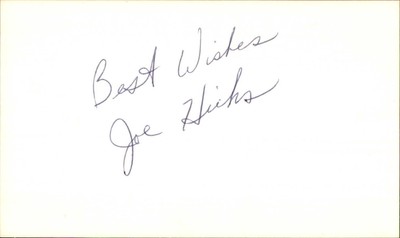 Best Wishes
Joe Hicks